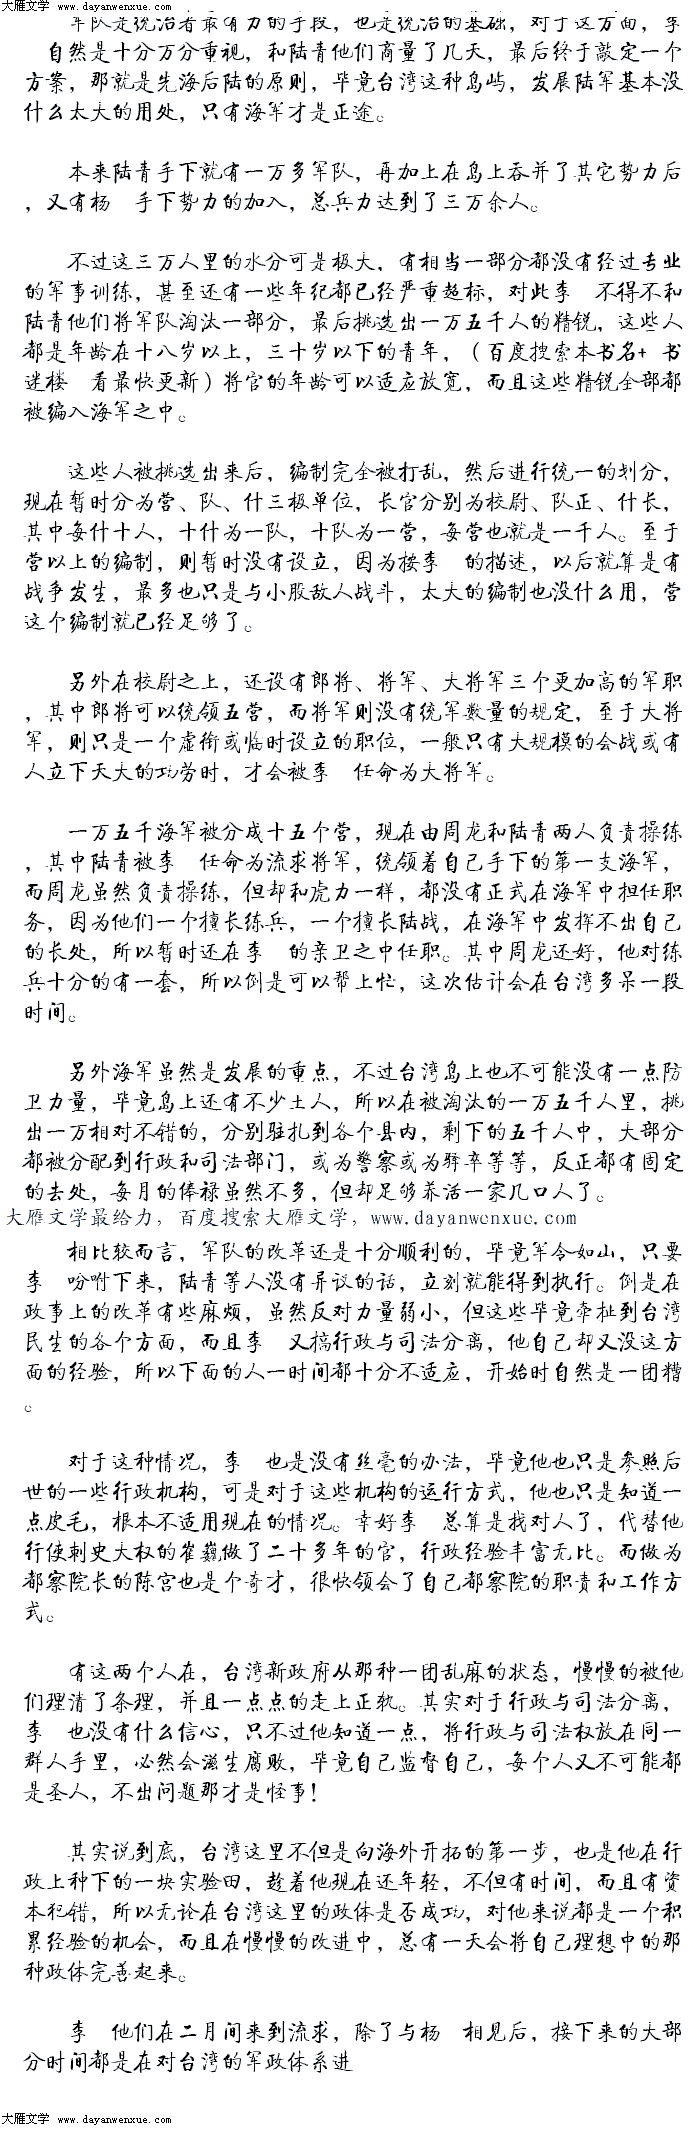 大雁文学 www.dayanwenxue.com
军队是统治者最有力的手段，也是统治的基础，对于这方面，李
自然是十分万分重视，和陆青他们商量了几天，最后终于敲定一个
方案，那就是先海后陆的原则，毕竟台湾这种岛屿，发展陆军基本没
什么太大的用处，只有海军才是正途。
本来陆青手下就有一万多军队，再加上在岛上吞并了其它势力后
，又有杨　手下势力的加入，总兵力达到了三万余人。
不过这三万人里的水分可是极大，有相当一部分都没有经过专业
的军事训练，甚至还有一些年纪都已经严重超标，对此李　不得不和
陆青他们将军队淘汰一部分，最后挑选出一万五千人的精锐，这些人
都是年龄在十八岁以上，三十岁以下的青年，（百度搜索本书名+ 书
迷楼　看最快更新）将官的年龄可以适应放宽，而且这些精锐全部都
被编入海军之中。
这些人被挑选出来后，编制完全被打乱，然后进行统一的划分，
现在暂时分为营、队、什三极单位，长官分别为校尉、队正、什长，
其中每什十人，十什为一队，十队为一营，每营也就是一千人。至于
营以上的编制，则暂时没有设立，因为按李　的描述，以后就算是有
战争发生，最多也只是与小股敌人战斗，太大的编制也没什么用，营
这个编制就已经足够了。
另外在校尉之上，还设有郎将、将军、大将军三个更加高的军职
，其中郎将可以统领五营，而将军则没有统军数量的规定，至于大将
军，则只是一个虚衔或临时设立的职位，一般只有大规模的会战或有
人立下天大的功劳时，才会被李　任命为大将军。
一万五千海军被分成十五个营，现在由周龙和陆青两人负责操练
，其中陆青被李　任命为流求将军，统领着自己手下的第一支海军，
而周龙虽然负责操练，但却和虎力一样，都没有正式在海军中担任职
务，因为他们一个擅长练兵，一个擅长陆战，在海军中发挥不出自己
的长处，所以暂时还在李　的亲卫之中任职。其中周龙还好，他对练
兵十分的有一套，所以倒是可以帮上忙，这次估计会在台湾多呆一段
时间。
另外海军虽然是发展的重点，不过台湾岛上也不可能没有一点防
卫力量，毕竟岛上还有不少土人，所以在被淘汰的一万五千人里，挑
出一万相对不错的，分别驻扎到各个县内，剩下的五千人中，大部分
都被分配到行政和司法部门，或为警察或为驿卒等等，反正都有固定
的去处，每月的俸禄虽然不多，但却足够养活一家几口人了。
大雁文学最给力，百度搜索大雁文学，www.dayanwenxue.com
相比较而言，军队的改革还是十分顺利的，毕竟军令如山，只要
李　吩咐下来，陆青等人没有异议的话，立刻就能得到执行。倒是在
政事上的改革有些麻烦，虽然反对力量弱小，但这些毕竟牵扯到台湾
民生的各个方面，而且李　又搞行政与司法分离，他自己却又没这方
面的经验，所以下面的人一时间都十分不适应，开始时自然是一团糟
。
对于这种情况，李　也是没有丝毫的办法，毕竟他也只是参照后
世的一些行政机构，可是对于这些机构的运行方式，他也只是知道一
点皮毛，根本不适用现在的情况。幸好李　总算是找对人了，代替他
行使刺史大权的崔巍做了二十多年的官，行政经验丰富无比。而做为
都察院长的陈宫也是个奇才，很快领会了自己都察院的职责和工作方
式。
有这两个人在，台湾新政府从那种一团乱麻的状态，慢慢的被他
们理清了条理，并且一点点的走上正轨。其实对于行政与司法分离，
李　也没有什么信心，只不过他知道一点，将行政与司法权放在同一
群人手里，必然会滋生腐败，毕竟自己监督自己，每个人又不可能都
是圣人，不出问题那才是怪事！
其实说到底，台湾这里不但是向海外开拓的第一步，也是他在行
政上种下的一块实验田，趁着他现在还年轻，不但有时间，而且有资
本犯错，所以无论在台湾这里的政体是否成功，对他来说都是一个积
累经验的机会，而且在慢慢的改进中，总有一天会将自己理想中的那
种政体完善起来。
李　他们在二月间来到流求，除了与杨　相见后，接下来的大部
分时间都是在对台湾的军政体系进
大雁文学 www.dayanwenxue.com